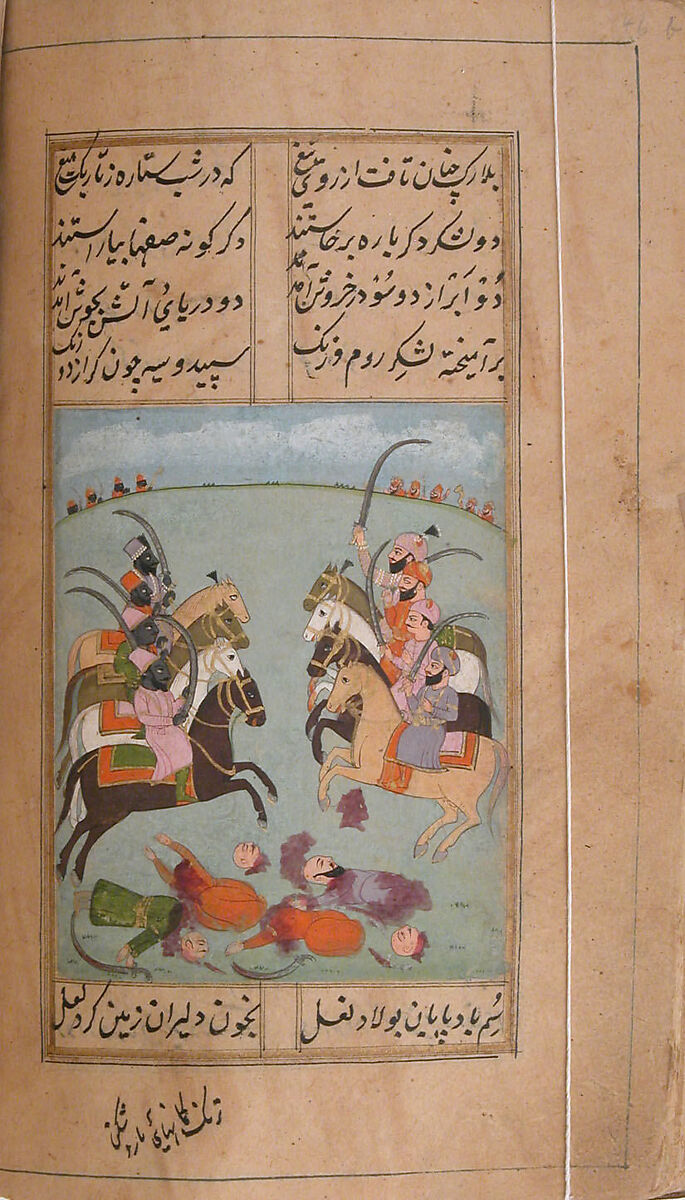 بلارک چنان تافت از روی تیغ که در شب ستاره ز تاریک میغ
دو لشکر دگرباره برخاستند دگرگونه صفها بیاراستند
دو ابر از دو سو در خروش آمدند دو دریای آتش بجوش آمدند
برآمیخته لشکر روم و زنگ سپید و سیه چون گراز دو رنگ
سم بادپایان پولاد نعل بخون دلیران زمین کرد لعل
ترنک کمانهای